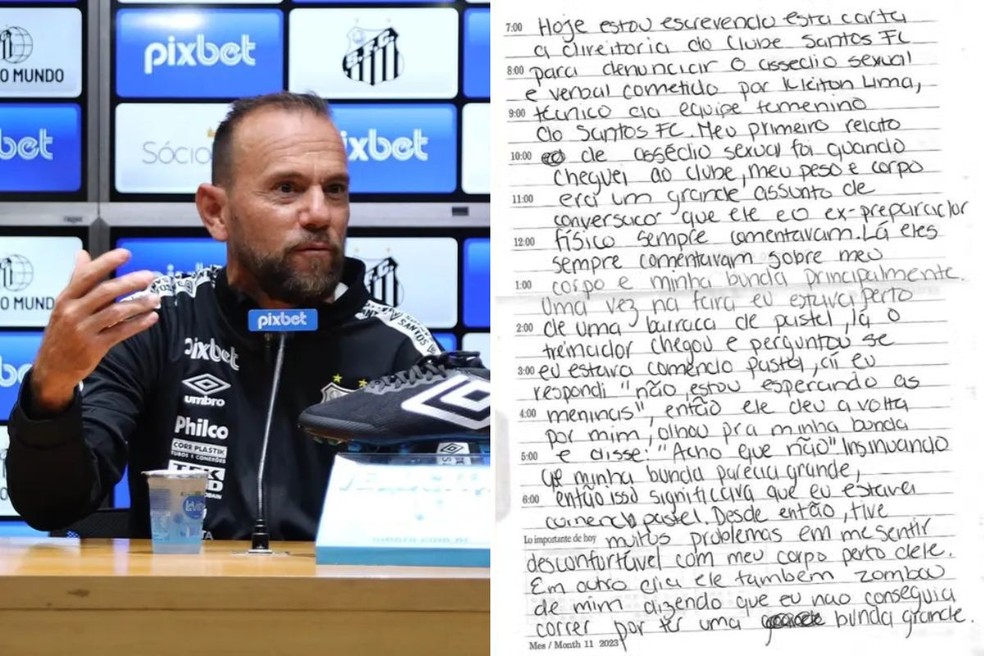 O MUNDO
pixbet
S.F.C.
xbet
Sócio
ixbet
O MUNDO
pixbet
SANTOS
pixbet
umbro
Philco
CORR PLASTIK
TUBOS E CONEXÕES
7:00 Hoje estou escrevendo esta carta
a direitoria do Clube Santos FC
8:00 para denunciar o assedio sexual
e verbal cometido por Kleiton Lima,
9:00 técnico da equipe femenino
do Santos FC. Meu primeiro relato
10:00 de assédio sexual foi quando
cheguei ao clube, meu peso e corpo
11:00 era um grande assunto de
conversaco que ele e o ex-preparador
12:00 físico sempre comentavam. Lá eles
sempre comentavam sobre meu
1:00 corpo e minha bunda principalmente.
Uma vez na fara eu estava perto
2:00 de uma barraca de pastel, lá o
treinador chegou e perguntou se
3:00 eu estava comendo pastel, aí eu
respondi "não, estou esperando as
4:00 meninas", então ele deu a volta
por mim, olhou pra minha bunda
5:00 e disse: "Acho que não". Insinuando
que minha bunda parecia grande,
6:00 então isso significava que eu estava
comendo pastel. Desde então, tive
Lo importante de hoy muitos problemas em me sentir
desconfortável com meu corpo perto dele.
Em outro dia ele também zombou
de mim dizendo que eu nao conseguia
correr por ter uma bunda grande.
Mes / Month 11 2023